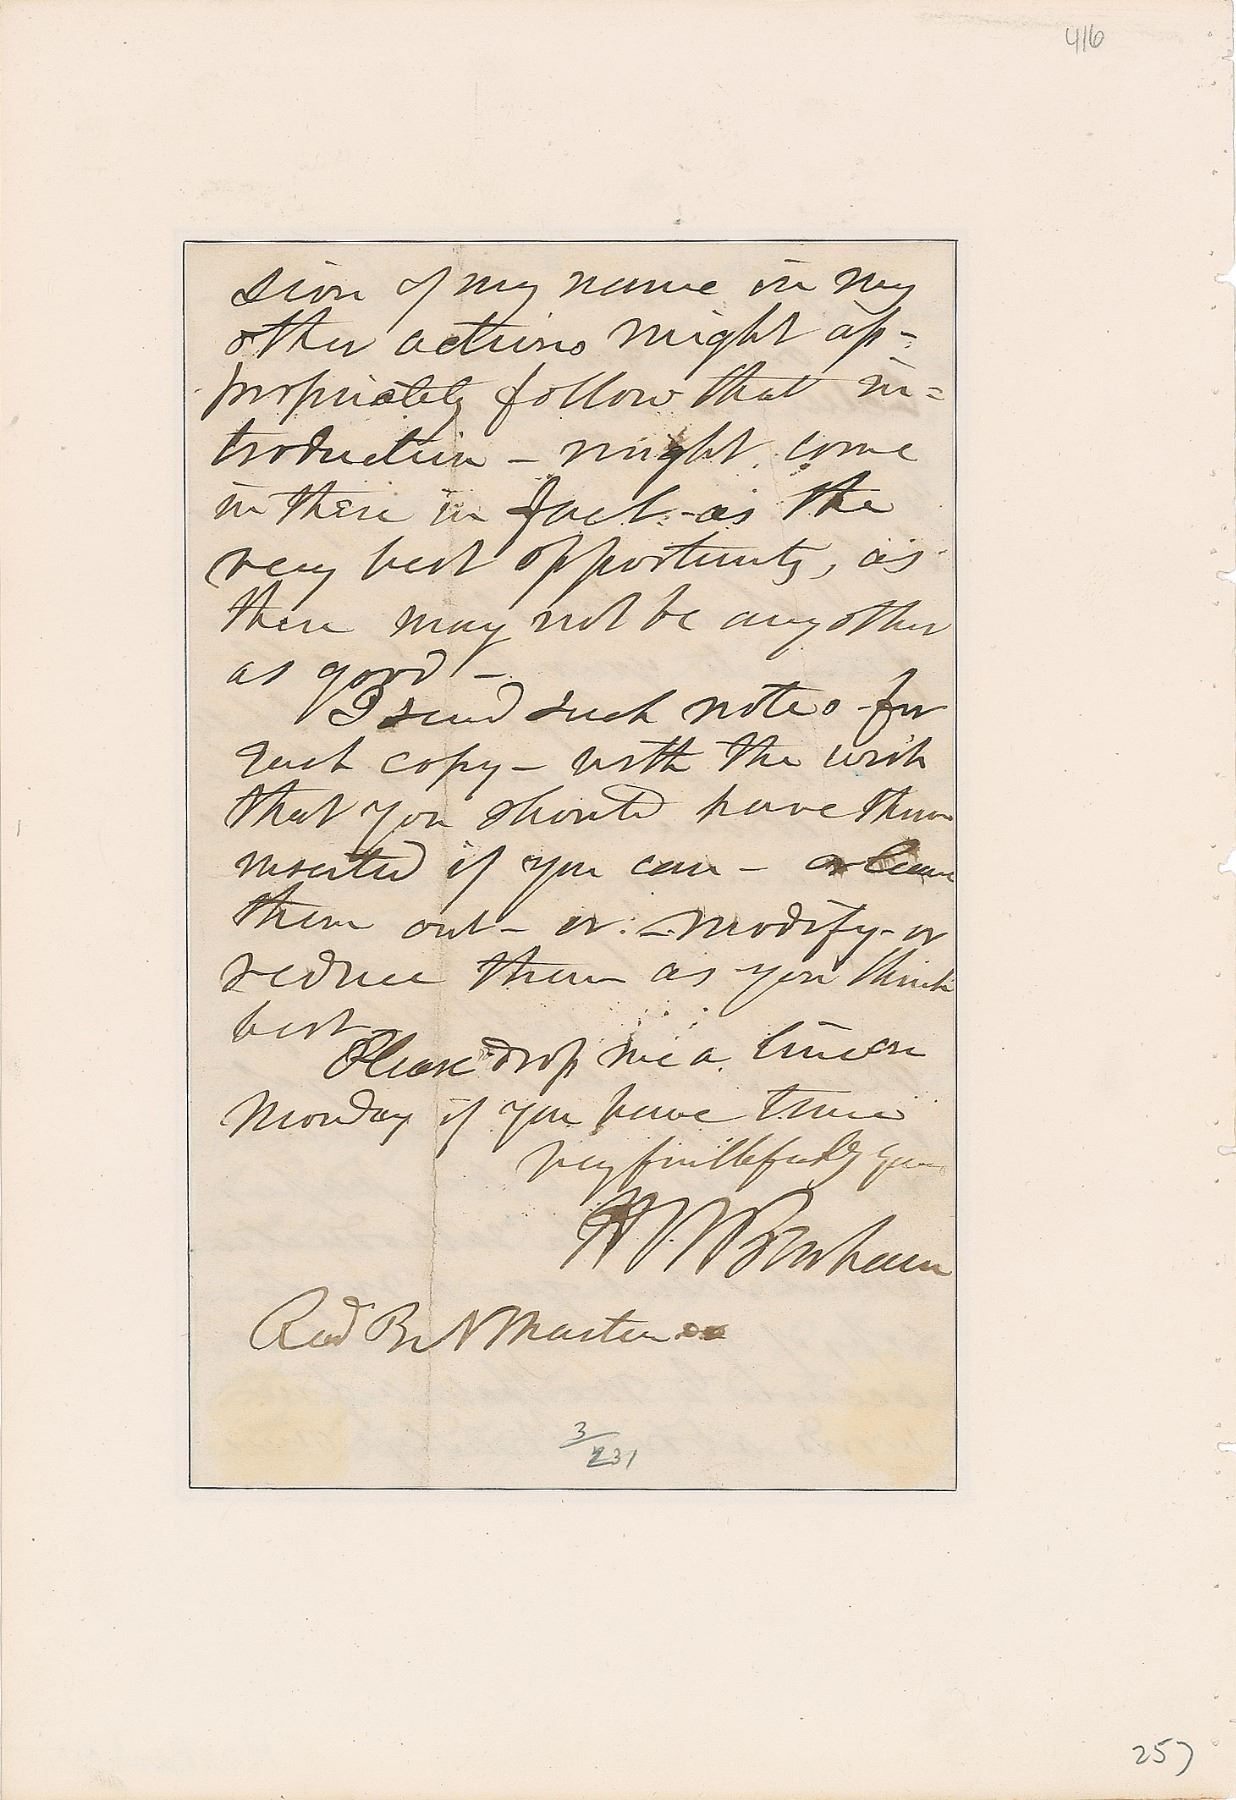 416
sion of my name in my
other actions might ap-
propriately follow that in=
troduction - might come
in there in fact - as the
very best opportunity, as
there may not be any other
as good -
I send such notes for
each copy - with the wish
that you should have them
inserted if you can - or leave
them out - or - modify - or
reduce them as you think
best -
Please drop me a line on
Monday if you have time
very faithfully yours
H W Benham
3/231
257